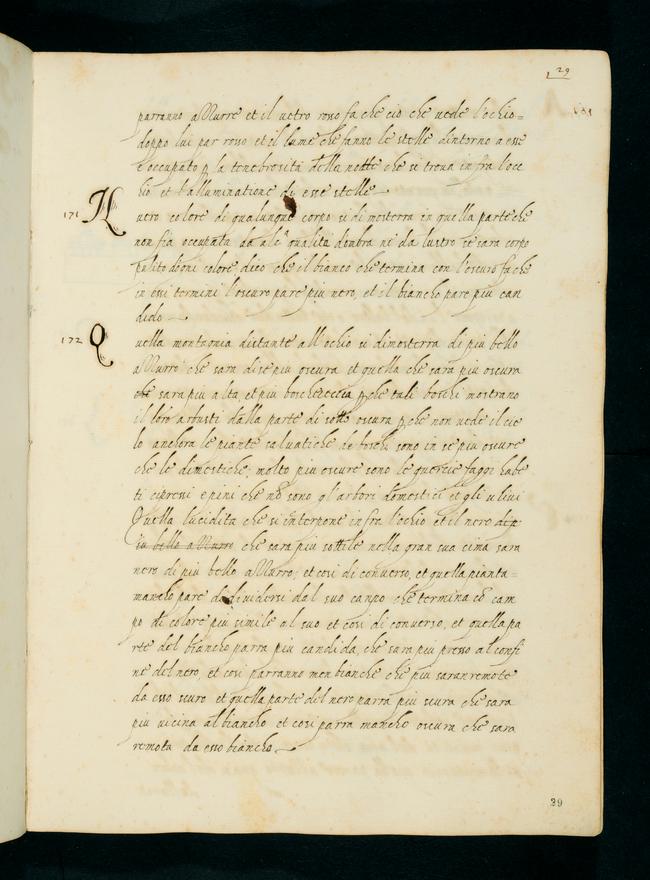 29
parranno aZurre et il uetro rosso fa che ciò che uede l'ochio=
doppo lui par rosso et il lume che fanno le stelle dintorno a esse
è occupato p la tenebrosità della notte che si troua in fra l'oc
hio et l'alluminatione di esse stelle
171 Il uero colore di qualunque corpo si di mosterra in quella parte che
non fia occupata da alcª qualità dombra nè da lustro se sara corpo
pulito dogni colore, dico che il bianco che termina con l'oscuro fa che
in essi termini l'oscuro pare piu nero, et il biancho pare piu can
dido
172 Quella montagnia distante all'ochio si dimosterra di piu bello
aZurro che sara di se piu oscura et quella che sara piu oscura
che sara piu alta, et piu boschereccia pche tali boschi mostrano
il loro arbusti dalla parte di sotto oscura pche non uede il cie
lo anchora le piante saluatiche de boschi sono in se piu oscure
che le dimestiche; molto piu oscure sono le quercie faggi habe
ti cipressi e pini che nõ sono gl'arbori domestici et gli uliui
Quella lucidita che si interpone in fra l'ochio et il nero dip
iu bello aZurro che sara piu sottile nella gran sua cima sara
nero di piu bello aZurro; et cosi di conuerso, et quella pianta=
mancho pare di diuidersi dal suo canpo che termina cõ cam
po di colore piu simile al suo et cosi di conuerso, et quella pa
rte del biancho parra piu candida, che sara piu presso al confi
ne del nero, et cosi parranno men bianche che piu saran remote
da esso scuro et quella parte del nero parra piu scura che sara
piu uicina al biancho et cosi parra mancho oscura che sara
remota da esso biancho
29